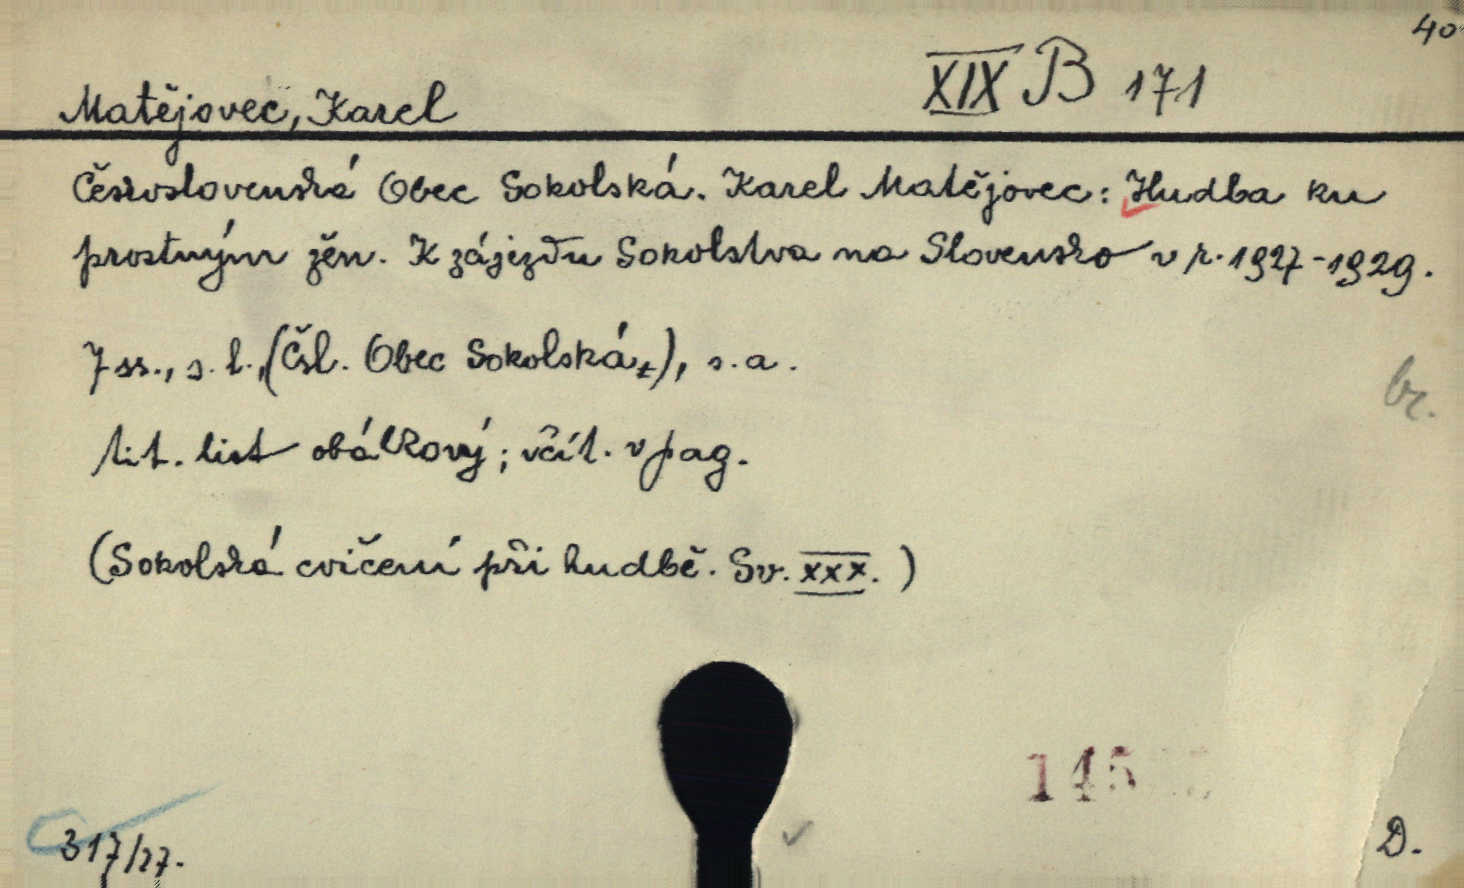 40
XIX B 171
Matějovec, Karel
Československá Obec Sokolská. Karel Matějovec: Hudba ku
prostným žen. K zájezdu Sokolstva na Slovensko v r. 1927-1929.
7 ss., s. l., (Čsl. Obec Sokolská), s. a.
br.
tit. list obálkový; včít. v pag.
(Sokolská cvičení při hudbě. Sv. XXX.)
145
317/27.
D.